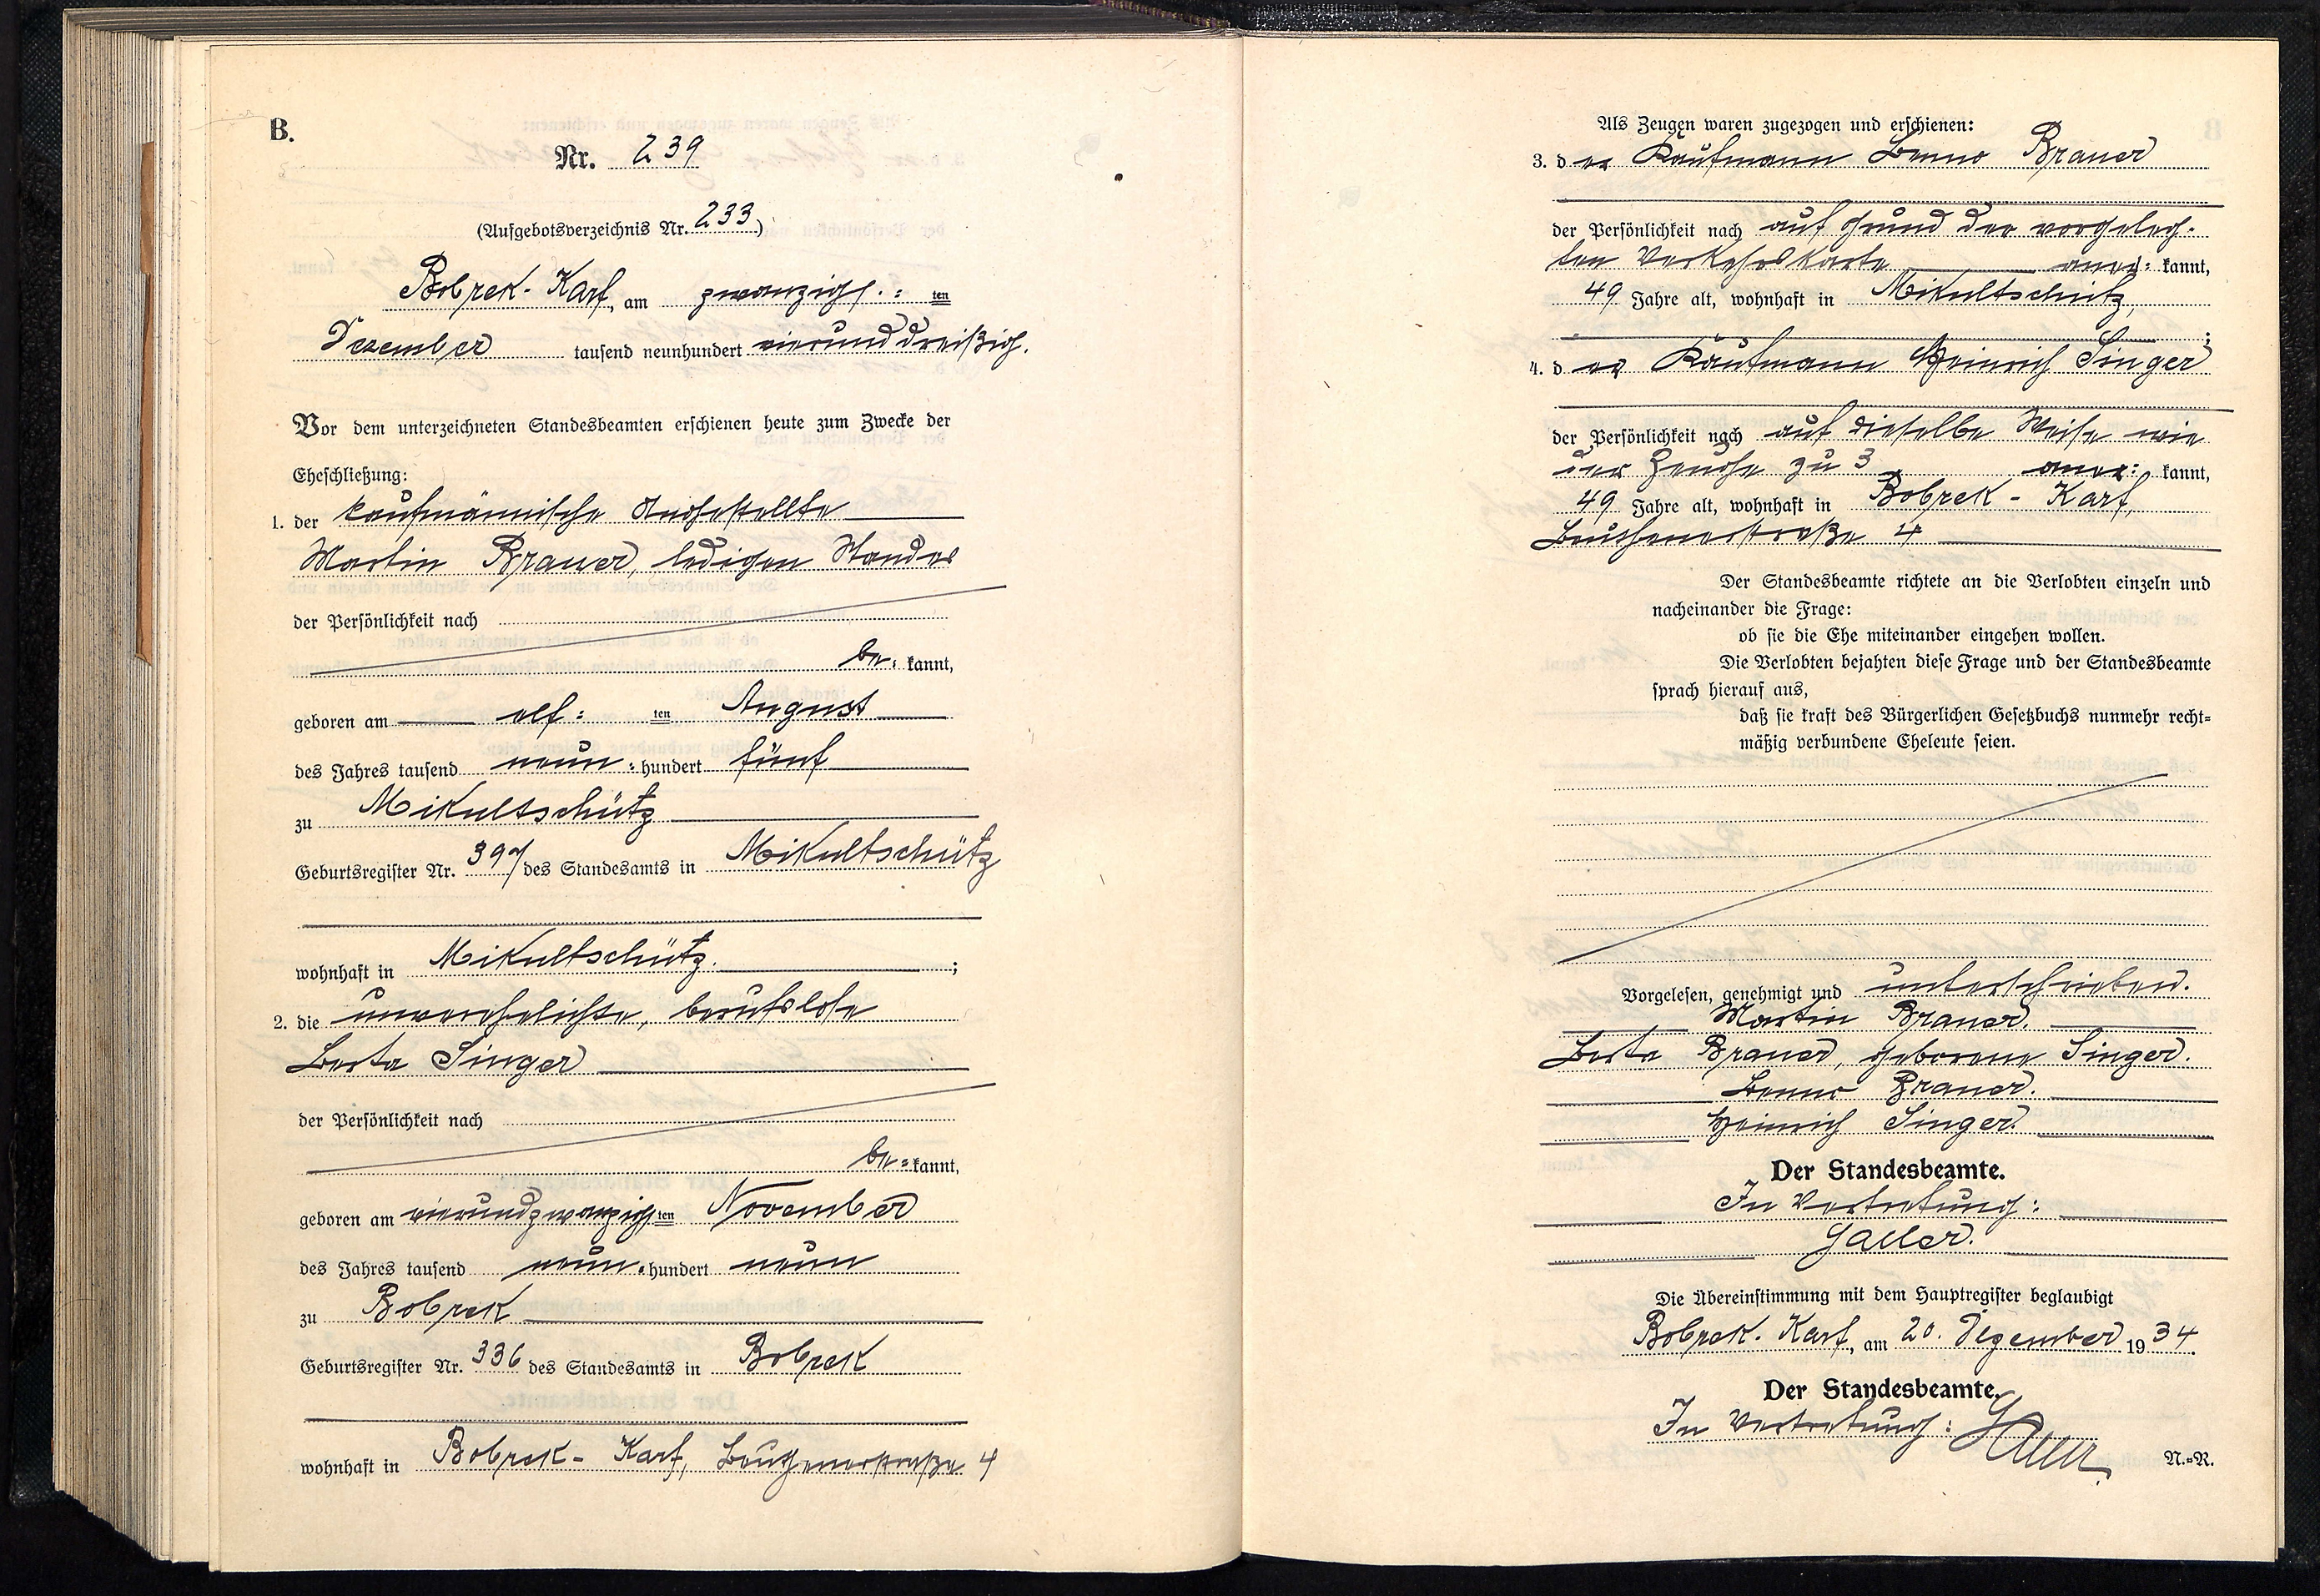 B.
Nr. 239
(Aufgebotsverzeichnis Nr. 233)
Bobrek-Karf, am zwanzigs:ten
Dezember tausend neunhundert vierunddreißig.
Vor dem unterzeichneten Standesbeamten erschienen heute zum Zwecke der
Eheschließung:
1. der kaufmännische Angestellte
Martin Brauer, ledigen Standes
der Persönlichkeit nach
be:kannt,
geboren am elf:ten August
des Jahres tausend neun:hundert fünf
zu Mikultschütz
Geburtsregister Nr. 397 des Standesamts in Mikultschütz
wohnhaft in Mikultschütz. ;
2. die unverehelichte, berufslose
Berta Singer
der Persönlichkeit nach
be=kannt,
geboren am vierundzwanzigsten November
des Jahres tausend neun:hundert neun
zu Bobrek
Geburtsregister Nr. 336 des Standesamts in Bobrek
wohnhaft in Bobrek-Karf, Beuthenerstraße 4
Als Zeugen waren zugezogen und erschienen:
3. der Kaufmann Benno Brauer
der Persönlichkeit nach auf Grund der vorgeleg-
ten Verkehrskarte aner:kannt,
49 Jahre alt, wohnhaft in Mikultschütz,
;
4. der Kaufmann Heinrich Singer
der Persönlichkeit nach auf dieselbe Weise wie
der Zeuge zu 3 aner:kannt,
49 Jahre alt, wohnhaft in Bobrek-Karf,
Beuthenerstraße 4
Der Standesbeamte richtete an die Verlobten einzeln und
nacheinander die Frage:
ob sie die Ehe miteinander eingehen wollen.
Die Verlobten bejahten diese Frage und der Standesbeamte
sprach hierauf aus,
daß sie kraft des Bürgerlichen Gesetzbuchs nunmehr recht=
mäßig verbundene Eheleute seien.
Vorgelesen, genehmigt und unterschrieben.
Martin Brauer.
Berta Brauer, geborene Singer.
Benno Brauer.
Heinrich Singer.
Der Standesbeamte.
In Vertretung:
Galler.
Die Übereinstimmung mit dem Hauptregister beglaubigt
Bobrek-Karf, am 20. Dezember 1934.
Der Standesbeamte.
In Vertretung:
N.=R.